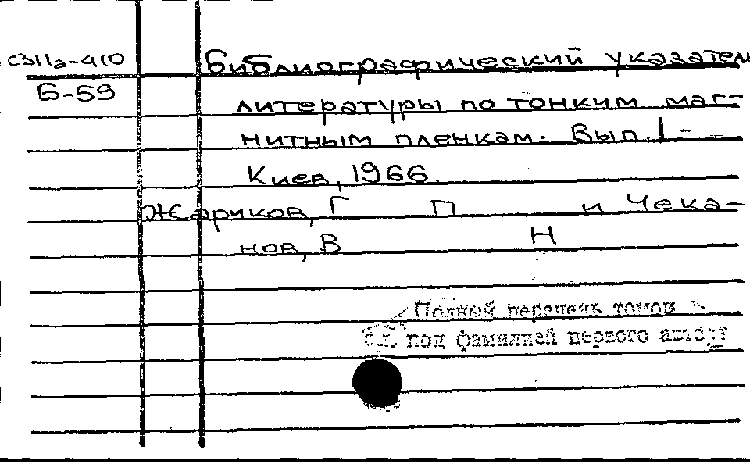 С311а-410 Библиографический указател
Б-59 литературы по тонким маг-
нитным пленкам. Вып. 1 -
Киев, 1966.
Жариков, Г П и Чека-
нов, В Н
Полный перечень томов
см. под фамилией первого автора